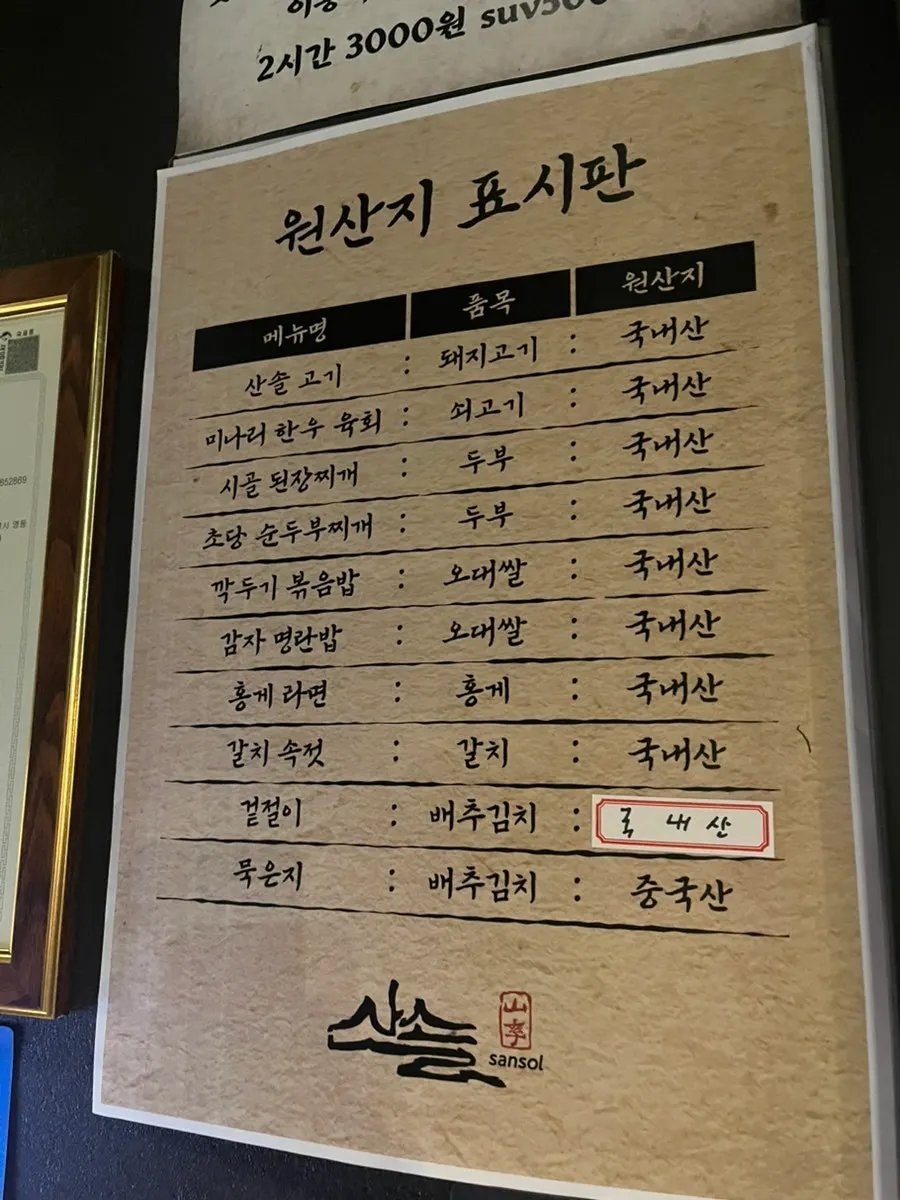 2시간 3000원
원산지 표시판
메뉴명 품목 원산지
산솔 고기 : 돼지고기 : 국내산
미나리 한우 육회 : 쇠고기 : 국내산
시골 된장찌개 : 두부 : 국내산
초당 순두부찌개 : 두부 : 국내산
깍두기 볶음밥 : 오대쌀 : 국내산
감자 명란밥 : 오대쌀 : 국내산
홍게 라면 : 홍게 : 국내산
갈치 속젓 : 갈치 : 국내산
겉절이 : 배추김치 : 국내산
묵은지 : 배추김치 : 중국산
산솔
sansol
852869